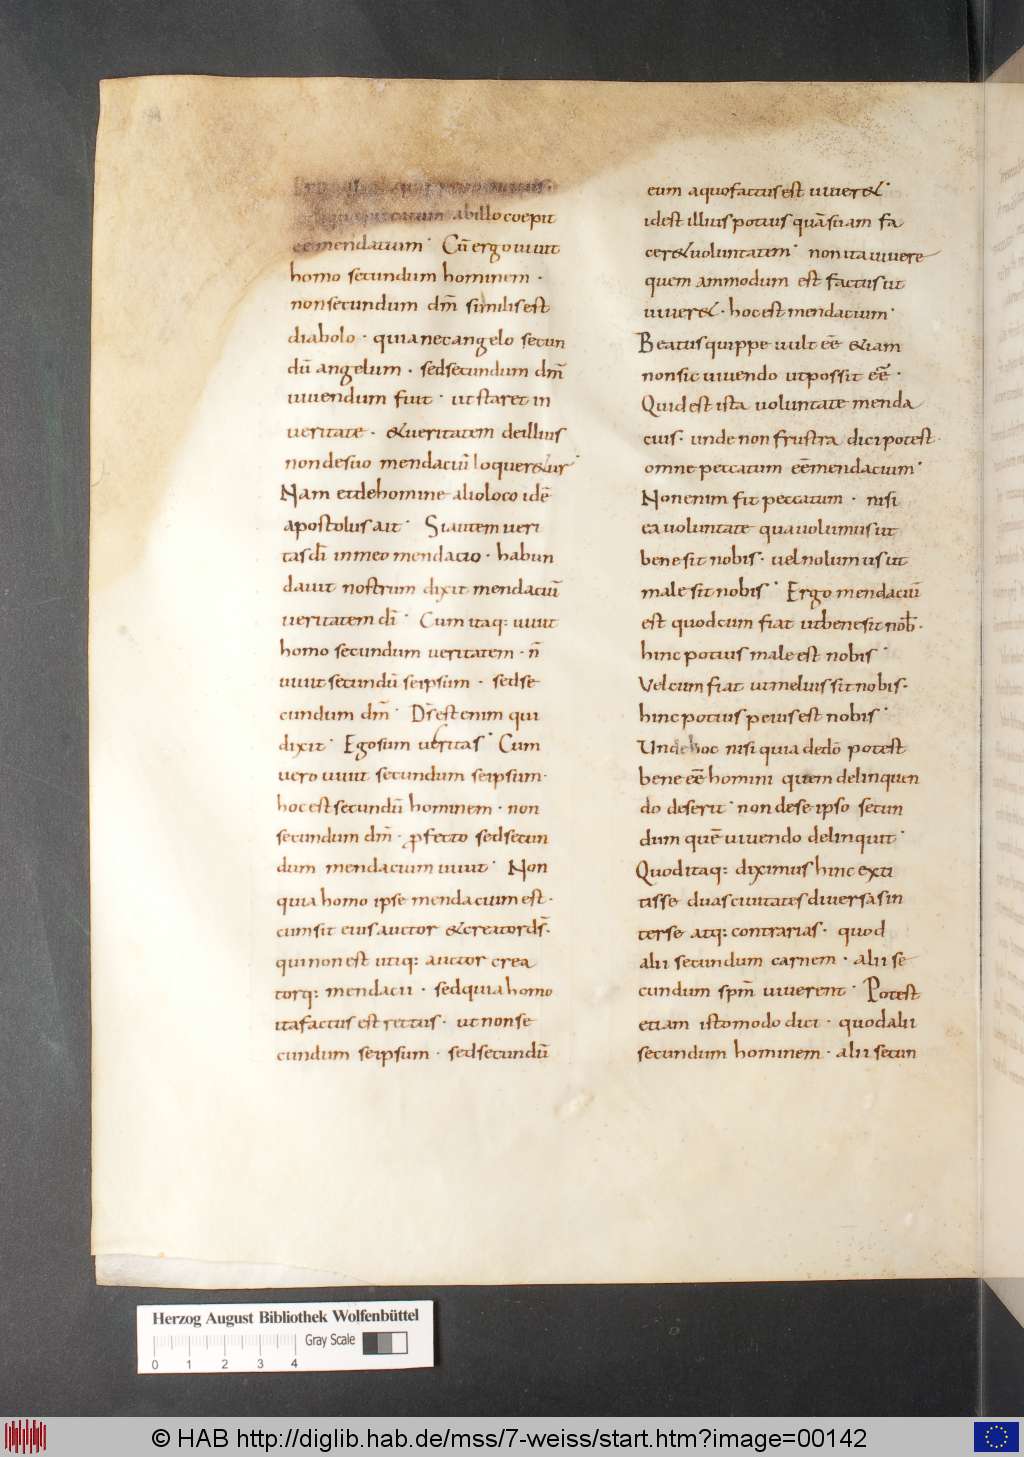 abillo coepit
ee mendacium· Cū ergo uiuit
homo secundum hominem·
non secundum dm̄ similis est
diabolo· quia nec angelo secun
dū angelum· sed secundum dm̄
uiuendum fuit· ut staret in
ueritate· & ueritatem de illius
non de suo mendaciū loquer&ur·
Nam et de homine alio loco idē
apostolus ait· Si autem ueri
tas dī in meo mendacio· habun
dauit nostrum dixit mendaciū
ueritatem dī· Cum itaq: uiuit
homo secundum ueritatem· n̄
uiuit secundū seipsum· sed se
cundum dm̄· Ds̄ est enim qui
dixit· Ego sum ueritas· Cum
uero uiuit secundum seipsum·
hoc est secundū hominem· non
secundum dm̄· ꝓfecto sed secun
dum mendacium uiuit· Non
quia homo ipse mendacium est·
cum sit eius auctor & creator ds̄·
qui non est utiq: auctor crea
torq: mendacii· sed quia homo
ita factus est rectus· ut non se
cundum seipsum· sed secundū
eum a quo factus est uiuer&·
id est illius potius quā suam fa
cer& uoluntatem· non ita uiuere
quem ammodum est factus ut
uiuer&· hoc est mendacium·
Beatus quippe uult eē &iam
non sic uiuendo ut possit eē·
Quid est ista uoluntate menda
cius· unde non frustra dici potest·
omne peccatum eē mendacium·
Non enim fit peccatum· nisi
ea uoluntate qua uolumus ut
bene sit nobis· uel nolumus ut
male sit nobis· Ergo mendaciū
est quod cum fiat ut bene sit nob̄·
hinc potius male est nobis·
Vel cum fiat ut melius sit nobis·
hinc potius peius est nobis·
Unde hoc nisi quia de dō potest
bene eē homini quem delinquen
do deserit· non de se ipso secun
dum quē uiuendo delinquit·
Quod itaq: diximus hinc exti
tisse duas ciuitates diuersas in
ter se atq: contrarias· quod
alii secundum carnem· alii se
cundum spm̄ uiuerent· Potest
etiam isto modo dici· quod alii
secundum hominem· alii secun
Herzog August Bibliothek Wolfenbüttel
Gray Scale
0 1 2 3 4
© HAB http://diglib.hab.de/mss/7-weiss/start.htm?image=00142